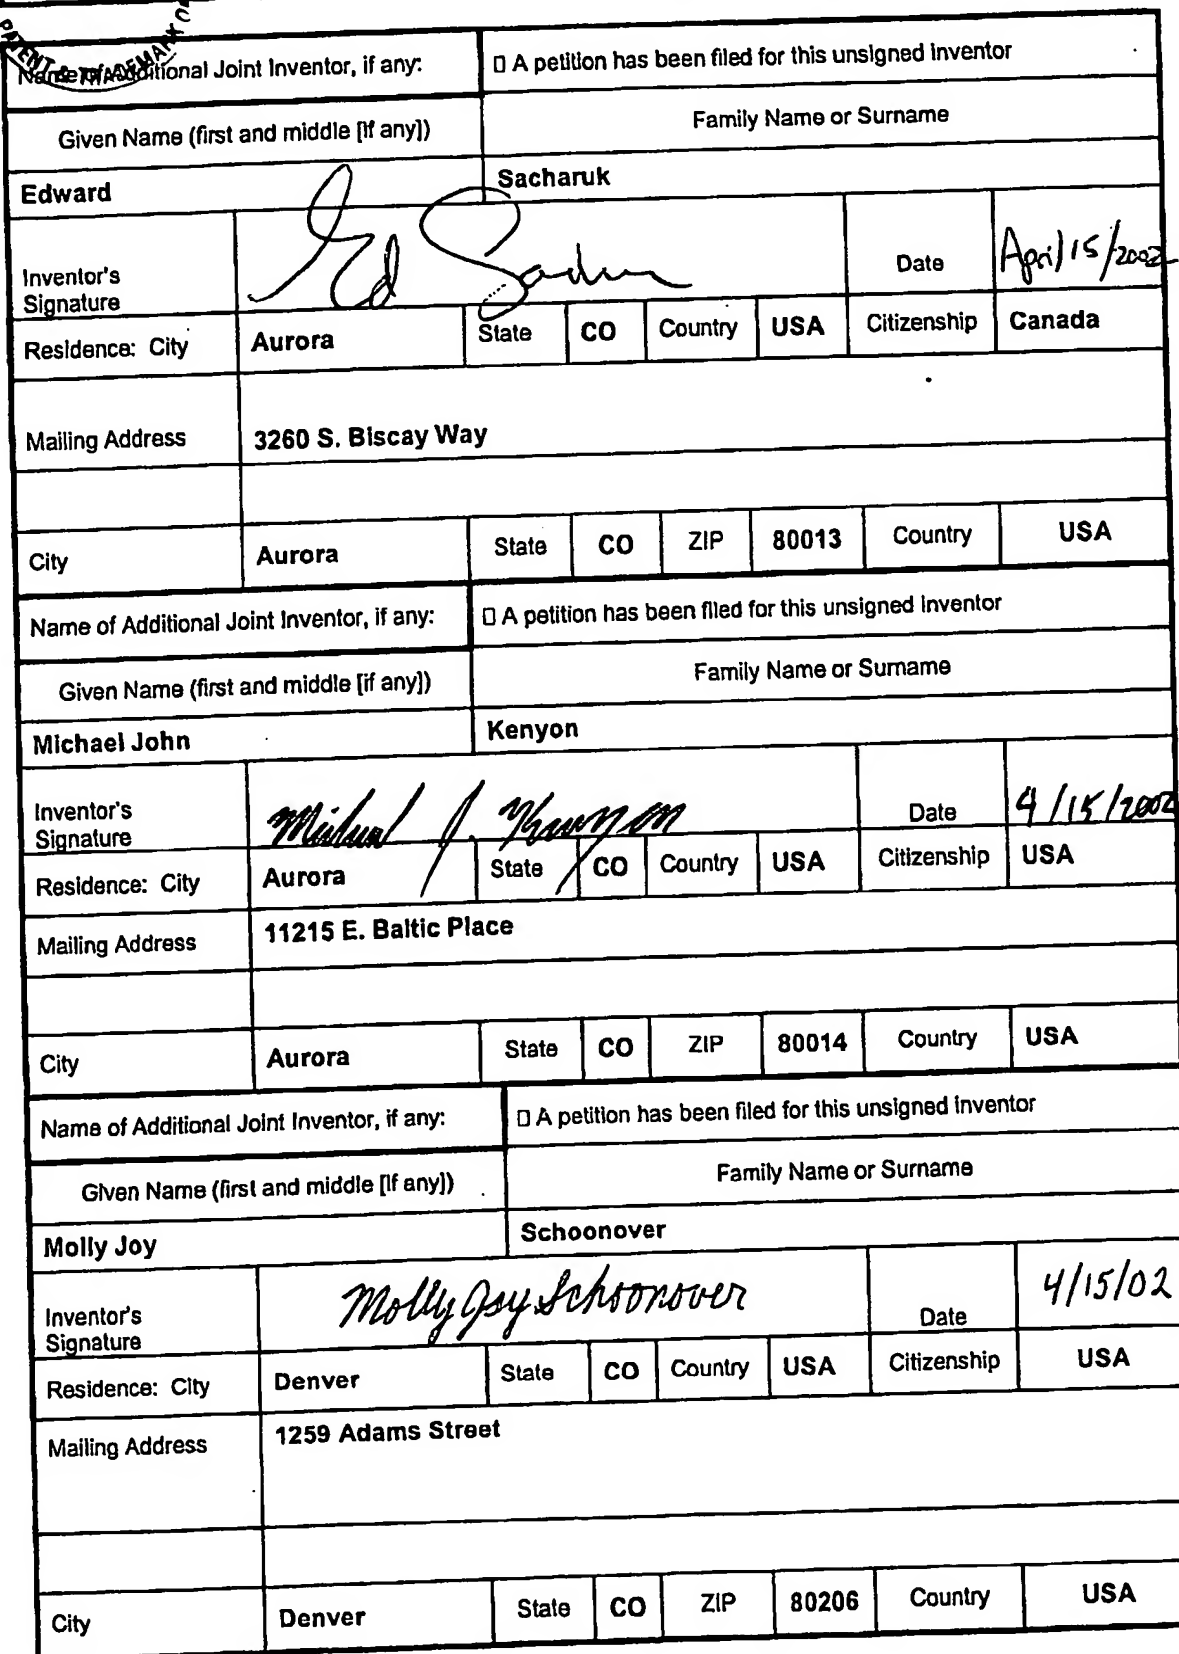 PATENT & TRADEMARK O
Name of Additional Joint Inventor, if any: ▯ A petition has been filed for this unsigned inventor
Given Name (first and middle [if any]) Family Name or Surname
Edward Sacharuk
Inventor's Signature Ed Date April 15/2002
Residence: City Aurora State CO Country USA Citizenship Canada
Mailing Address 3260 S. Biscay Way
City Aurora State CO ZIP 80013 Country USA
Name of Additional Joint Inventor, if any: ▯ A petition has been filed for this unsigned inventor
Given Name (first and middle [if any]) Family Name or Surname
Michael John Kenyon
Inventor's Signature Michael J. Kenyon Date 4/15/2002
Residence: City Aurora State CO Country USA Citizenship USA
Mailing Address 11215 E. Baltic Place
City Aurora State CO ZIP 80014 Country USA
Name of Additional Joint Inventor, if any: ▯ A petition has been filed for this unsigned inventor
Given Name (first and middle [if any]) Family Name or Surname
Molly Joy Schoonover
Inventor's Signature Molly Joy Schoonover Date 4/15/02
Residence: City Denver State CO Country USA Citizenship USA
Mailing Address 1259 Adams Street
City Denver State CO ZIP 80206 Country USA